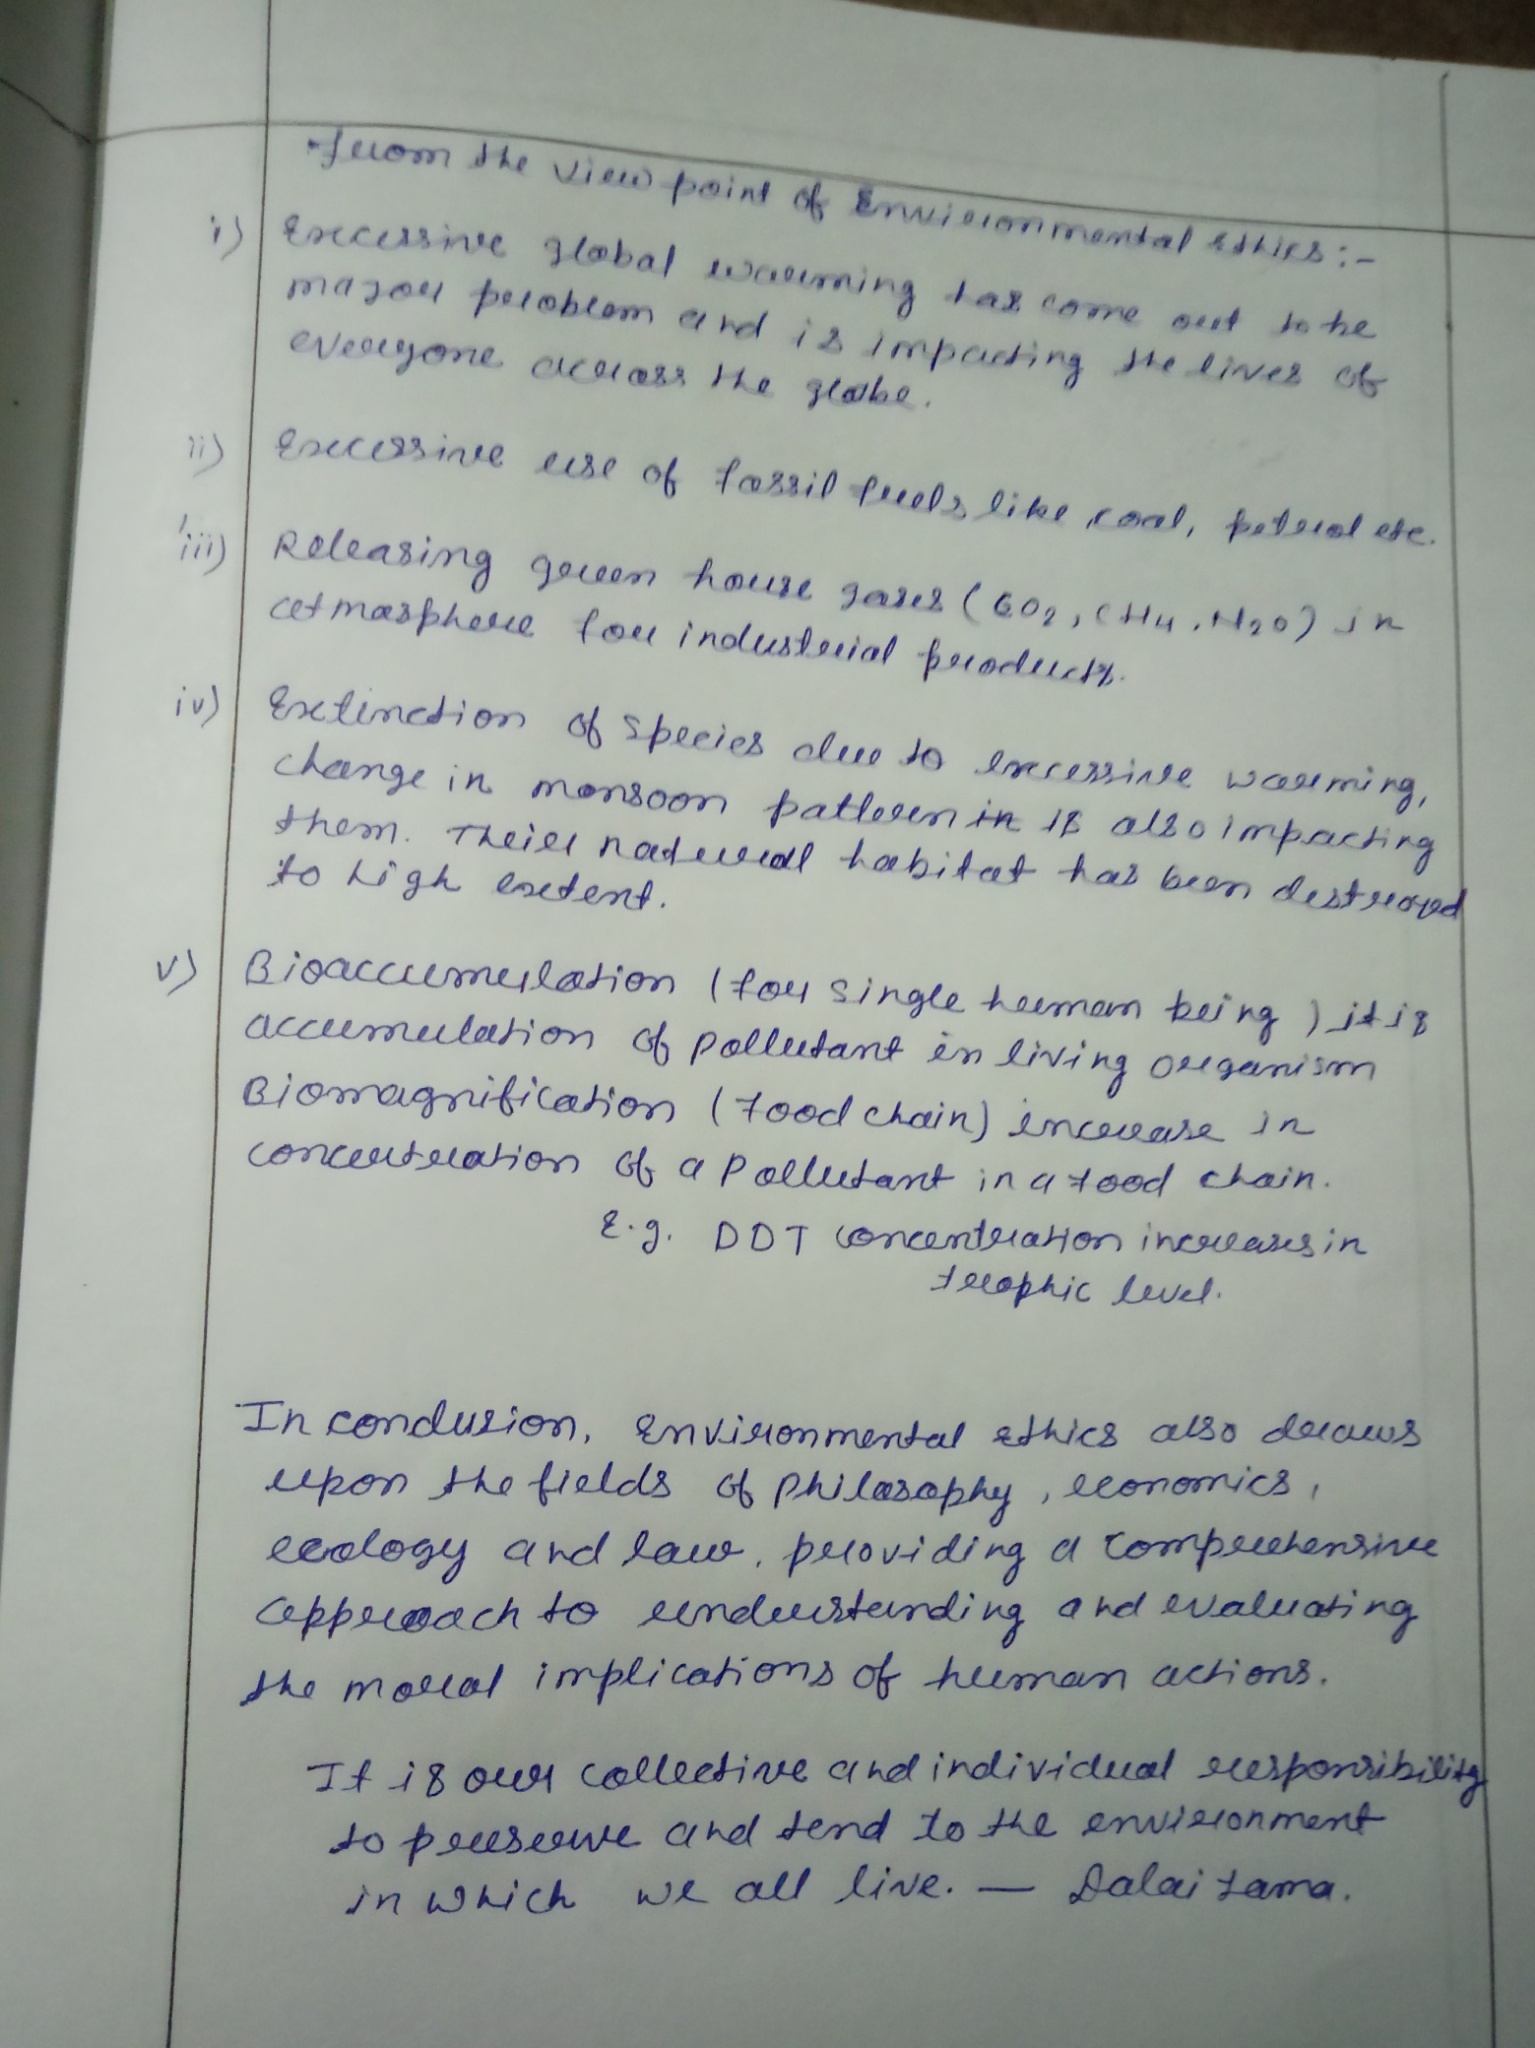 • from the view point of Environmental ethics :-
i) Excessive global warming has come out to be
major problem and is impacting the lives of
everyone across the globe.
ii) Excessive use of fossil fuels like coal, petrol etc.
iii) Releasing green house gases (CO2, CH4, N2O) in
atmosphere for industrial products.
iv) Extinction of species due to excessive warming,
change in monsoon pattern is also impacting
them. Their natural habitat has been destroyed
to high extent.
v) Bioaccumulation (for single human being) it is
accumulation of pollutant in living organism
Biomagnification (food chain) increase in
concentration of a pollutant in a food chain.
E.g. DDT concentration increases in
trophic level.
In conclusion, Environmental ethics also draws
upon the fields of philosophy, economics,
ecology and law, providing a comprehensive
approach to understanding and evaluating
the moral implications of human actions.
It is our collective and individual responsibility
to preserve and tend to the environment
in which we all live. — Dalai Lama.